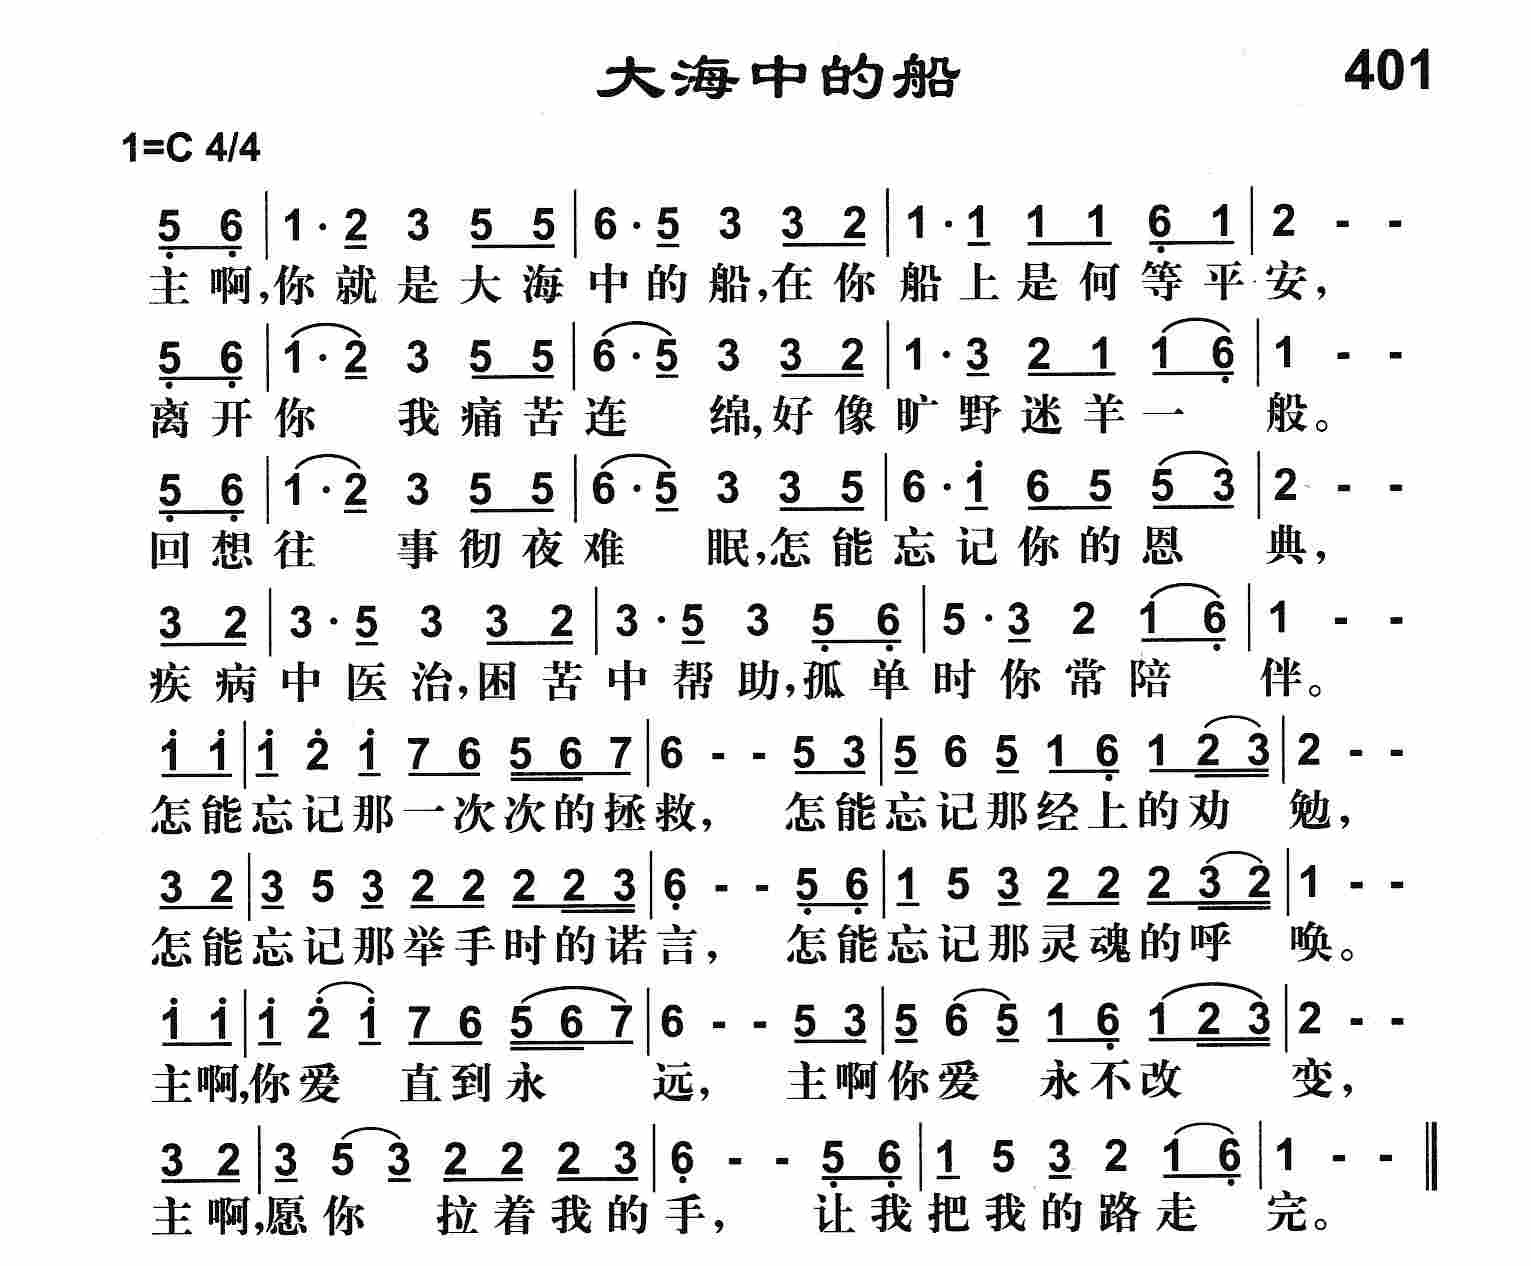 大海中的船 401
1=C 4/4
5̣ 6̣ | 1 · 2 3 5 5 | 6 · 5 3 3 2 | 1 · 1 1 1 6̣ 1 | 2 - -
主啊,你就是大海中的船,在你船上是何等平安,
5̣ 6̣ | 1 · 2 3 5 5 | 6 · 5 3 3 2 | 1 · 3 2 1 1 6̣ | 1 - -
离开你 我痛苦连 绵,好像旷野迷羊一 般。
5̣ 6̣ | 1 · 2 3 5 5 | 6 · 5 3 3 5 | 6 · 1̇ 6 5 5 3 | 2 - -
回想往 事彻夜难 眠,怎能忘记你的恩 典,
3 2 | 3 · 5 3 3 2 | 3 · 5 3 5̣ 6̣ | 5 · 3 2 1 6̣ | 1 - -
疾病中医治,困苦中帮助,孤单时你常陪 伴。
1̇ 1̇ | 1̇ 2̇ 1̇ 7 6 5 6 7 | 6 - - 5 3 | 5 6 5 1 6̣ 1 2 3 | 2 - -
怎能忘记那一次次的拯救, 怎能忘记那经上的劝 勉,
3 2 | 3 5 3 2 2 2 2 3 | 6̣ - - 5̣ 6̣ | 1 5 3 2 2 2 3 2 | 1 - -
怎能忘记那举手时的诺言, 怎能忘记那灵魂的呼 唤。
1̇ 1̇ | 1̇ 2̇ 1̇ 7 6 5 6 7 | 6 - - 5 3 | 5 6 5 1 6̣ 1 2 3 | 2 - -
主啊,你爱 直到永 远, 主啊你爱 永不改 变,
3 2 | 3 5 3 2 2 2 3 | 6̣ - - 5̣ 6̣ | 1 5 3 2 1 6̣ | 1 - - ‖
主啊,愿你 拉着我的手, 让我把我的路走 完。